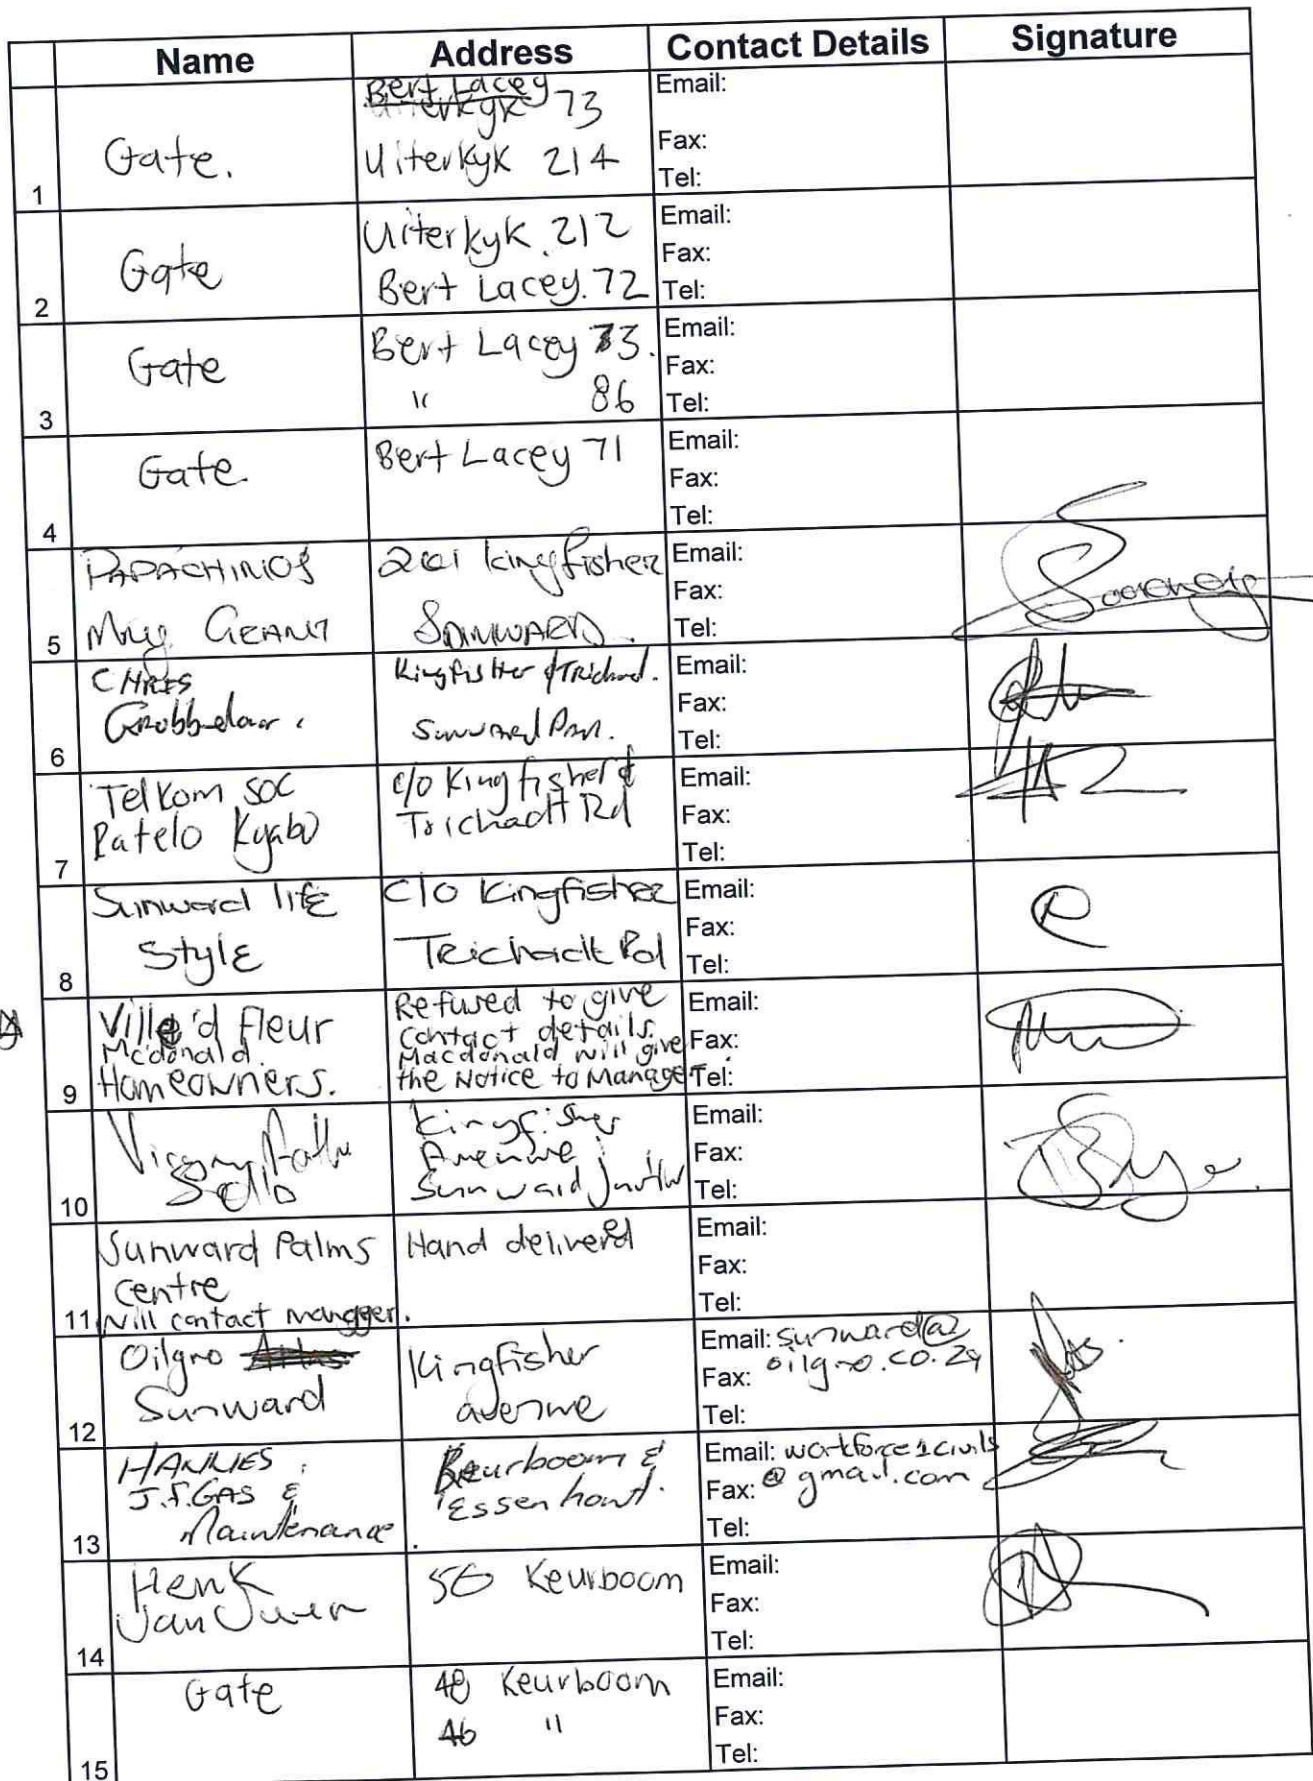 Name Address Contact Details Signature
1 Gate. Bert Lacey 73
Uiterkyk 214
Email:
Fax:
Tel:
2 Gate Uiterkyk 212
Bert Lacey. 72
Email:
Fax:
Tel:
3 Gate Bert Lacey 73.
" 86
Email:
Fax:
Tel:
4 Gate. Bert Lacey 71
Email:
Fax:
Tel:
5 PAPACHINOS 201 kingfisher
Email:
Fax:
Tel:
6 CHRIS
Grobbelaar.
Kingfisher &
Email:
Fax:
Tel:
7 Telkom SOC
c/o Kingfisher &
Trichadt Rd
Email:
Fax:
Tel:
8 Sunward life
Style
C/O Kingfisher
Trichadt Rd
Email:
Fax:
Tel:
9 Ville'd Fleur
Mcdonald.
Homeowners.
Refused to give
contact details.
Macdonald will give
the Notice to Manage
Email:
Fax:
Tel:
10 Kingfisher
Avenue
Sunward
Email:
Fax:
Tel:
11 Sunward Palms
Centre
Will contact manager.
Hand deliverd
Email:
Fax:
Tel:
12 Oilgro
Sunward
Kingfisher
avenue
Email: sunward@
Fax: oilgro.co.za
Tel:
13 HANNIES
J.F. GAS &
Maintenance.
Keurboom &
Essenhout.
Email: workforce1civils
Fax: @gmail.com
Tel:
14 Henk
Jan
56 Keurboom
Email:
Fax:
Tel:
15 Gate 48 Keurboom
46 "
Email:
Fax:
Tel: